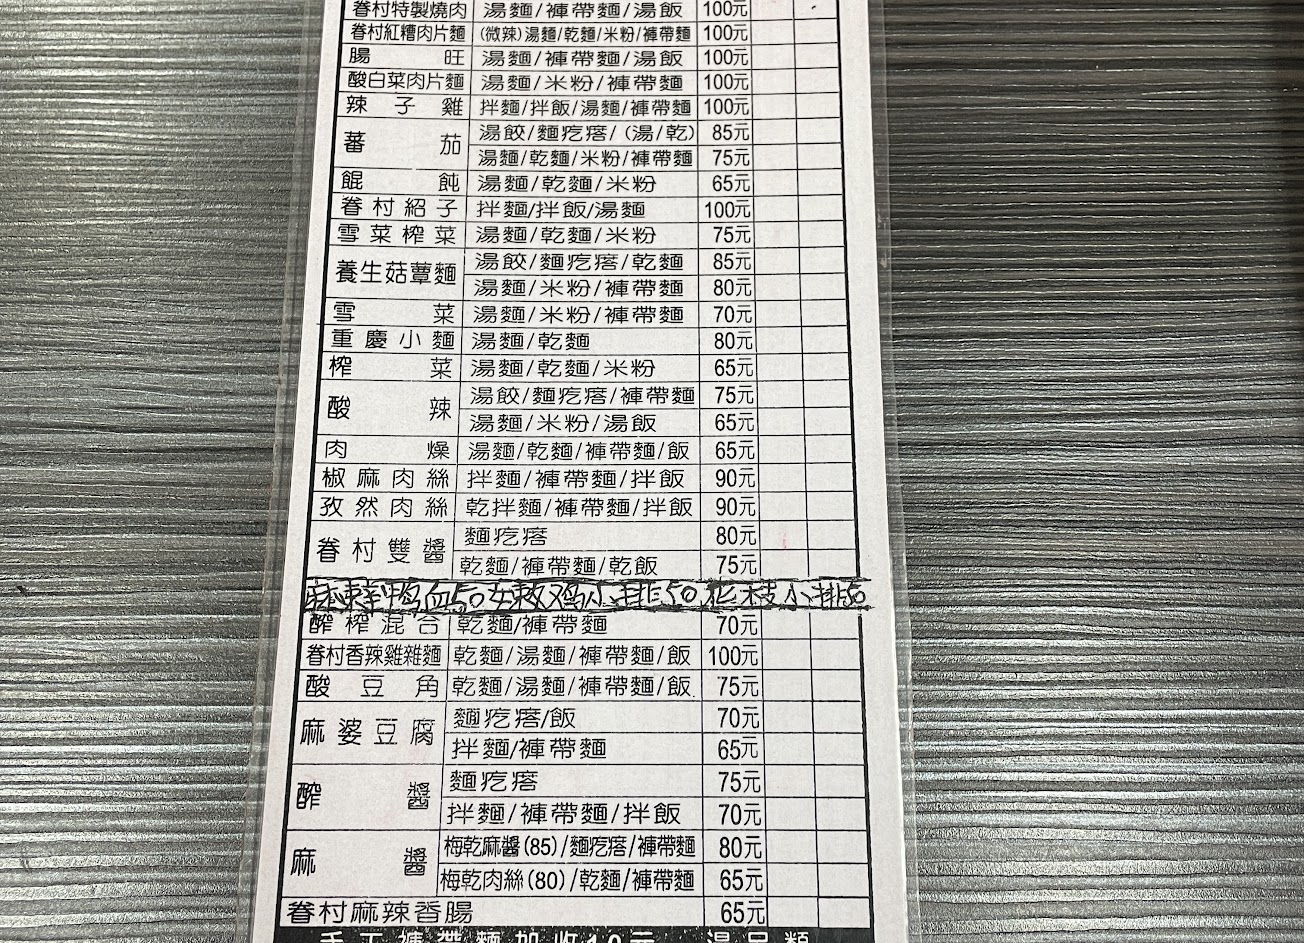 眷村特製燒肉 湯麵/褲帶麵/湯飯 100元
眷村紅糟肉片麵 (微辣)湯麵/乾麵/米粉/褲帶麵 100元
腸旺 湯麵/褲帶麵/湯飯 100元
酸白菜肉片麵 湯麵/米粉/褲帶麵 100元
辣子雞 拌麵/拌飯/湯麵/褲帶麵 100元
蕃茄 湯餃/麵疙瘩/(湯/乾) 85元
湯麵/乾麵/米粉/褲帶麵 75元
餛飩 湯麵/乾麵/米粉 65元
眷村紹子 拌麵/拌飯/湯麵 100元
雪菜榨菜 湯麵/乾麵/米粉 75元
養生菇蕈麵 湯餃/麵疙瘩/乾麵 85元
湯麵/米粉/褲帶麵 80元
雪菜 湯麵/米粉/褲帶麵 70元
重慶小麵 湯麵/乾麵 80元
榨菜 湯麵/乾麵/米粉 65元
酸辣 湯餃/麵疙瘩/褲帶麵 75元
湯麵/米粉/湯飯 65元
肉燥 湯麵/乾麵/褲帶麵/飯 65元
椒麻肉絲 拌麵/褲帶麵/拌飯 90元
孜然肉絲 乾拌麵/褲帶麵/拌飯 90元
眷村雙醬 麵疙瘩 80元
乾麵/褲帶麵/乾飯 75元
麻辣鸭血50 椒鸡小排50 花枝小排50
醡榨混合 乾麵/褲帶麵 70元
眷村香辣雞雜麵 乾麵/湯麵/褲帶麵/飯 100元
酸豆角 乾麵/湯麵/褲帶麵/飯 75元
麻婆豆腐 麵疙瘩/飯 70元
拌麵/褲帶麵 65元
醡醬 麵疙瘩 75元
拌麵/褲帶麵/拌飯 70元
麻醬 梅乾麻醬(85)/麵疙瘩/褲帶麵 80元
梅乾肉絲(80)/乾麵/褲帶麵 65元
眷村麻辣香腸 65元
手工褲帶麵加收10元 湯品類